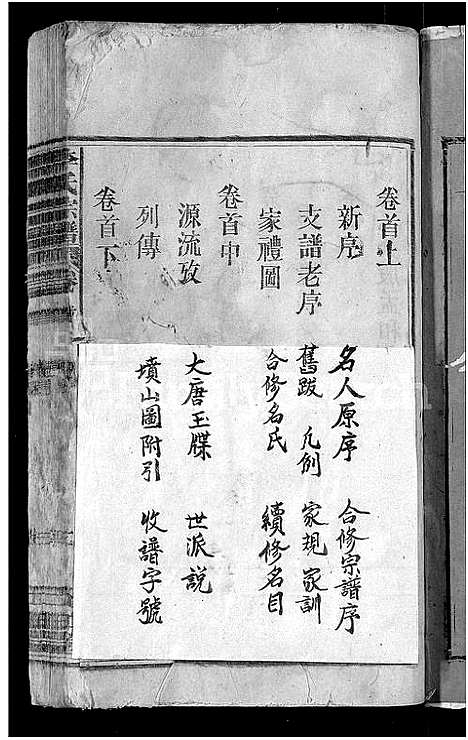 卷首上
新序 名人原序 合修宗譜序
支譜老序 舊跋 凡例 家規 家訓
家禮圖 合修名氏 續修名目
卷首中
源流攷 大唐玉牒 世派說
列傳 墳山圖附引 收譜字號
卷首下
氏宗譜